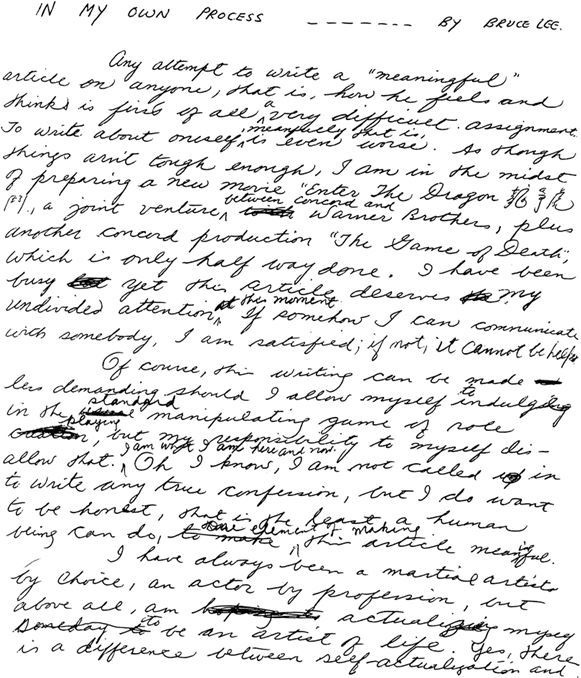 IN MY OWN PROCESS ------- BY BRUCE LEE.
Any attempt to write a "meaningful"
article on anyone, that is, how he feels and
thinks is first of all a very difficult assignment.
To write about oneself, meanfully that is, is even worse. As though
things ain't tough enough, I am in the midst
of preparing a new movie "Enter The Dragon
, a joint venture between Concord and Warner Brothers, plus
another Concord production "The Game of Death",
which is only half way done. I have been
busy yet this article deserves my
undivided attention at this moment. If somehow I can communicate
with somebody, I am satisfied; if not, it cannot be helped
Of course, this writing can be made
less demanding should I allow myself to indulge
in the standard manipulating game of role
playing, but my responsibility to myself dis-
allow that. I am what I am here and now. Oh I know, I am not called in
to write any true confession, but I do want
to be honest, that is the least a human
being can do, element of making this article meaningful.
I have always been a martial artist
by choice, an actor by profession, but
above all, am actualizing myself
to be an artist of life. Yes, there
is a difference between self-actualization and